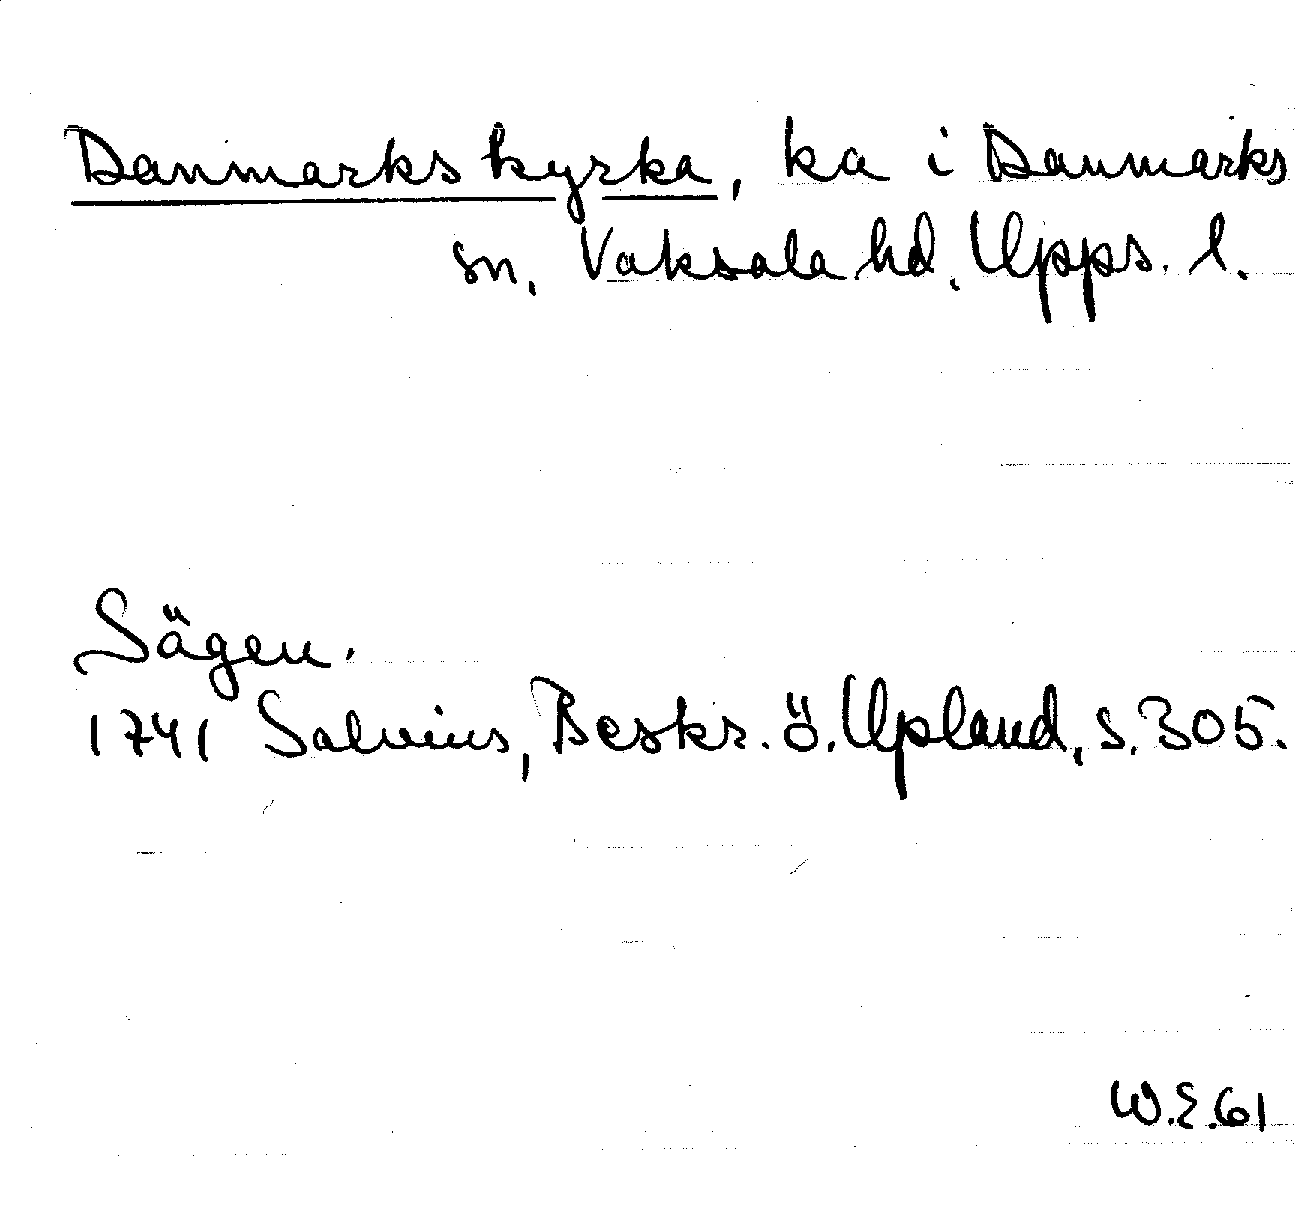 Danmarks kyrka, ka i Danmarks
sn, Vaksala hd. Upps. l.
Sägen.
1741 Salvius, Beskr. ö. Upland, s. 305.
W.E.61